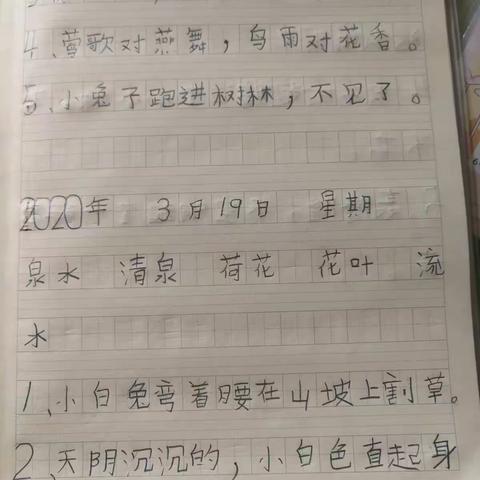 4、莺歌对燕舞，鸟雨对花香。
5、小兔子跑进树林，不见了。
2020年 3月19日 星期
泉水 清泉 荷花 花叶 流
水
1、小白兔弯着腰在山坡上割草。
2、天阴沉沉的，小白色直起身